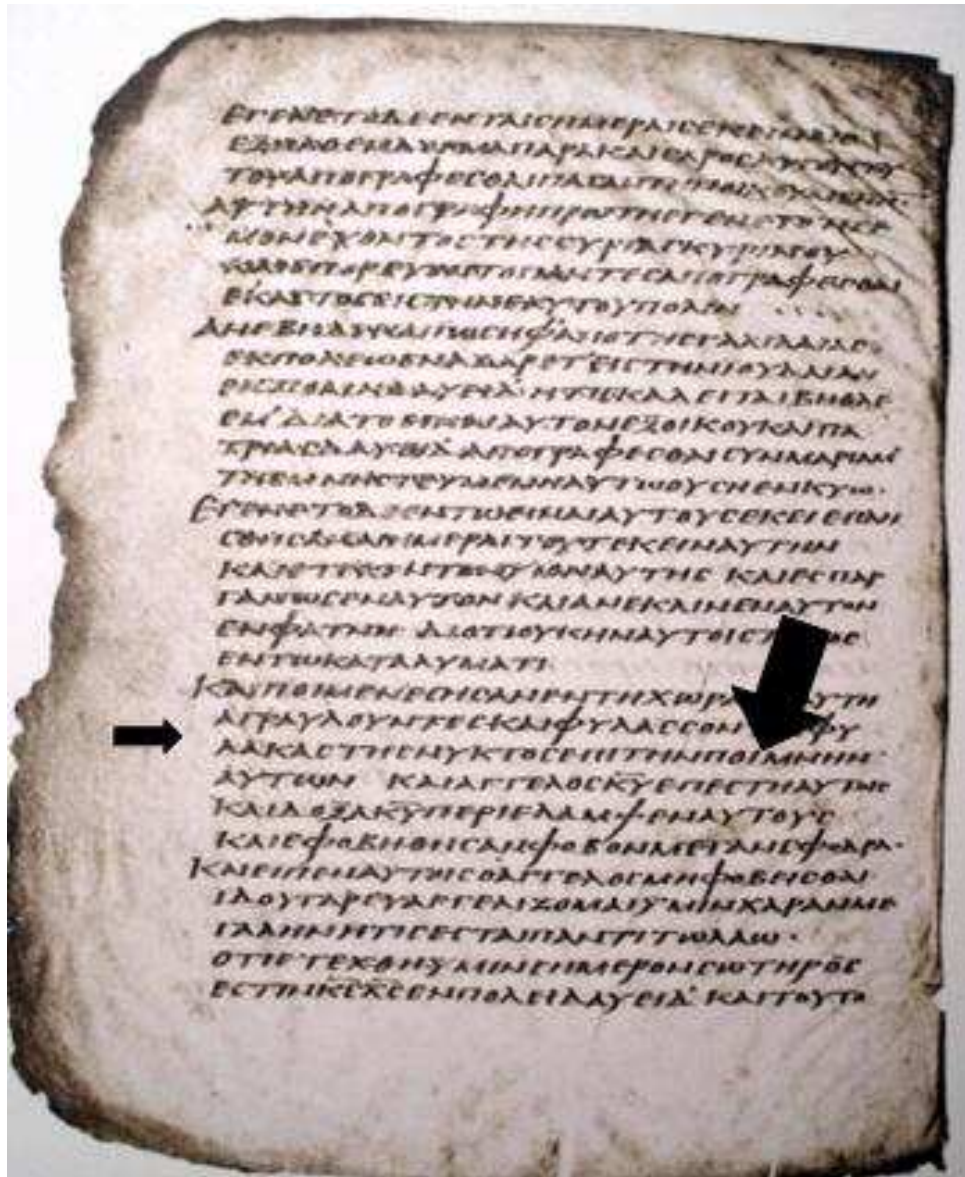 ΕΓΕΝΕΤΟΔΕΕΝΤΑΙCΗΜΕΡΑΙCΕΚΕΙΝΑΙC
ΕΞΗΛΘΕΝΔΟΓΜΑΠΑΡΑΚΑΙCΑΡΟCΑΥΓΟΥCΤΟΥ
ΤΟΥΑΠΟΓΡΑΦΕCΘΑΙΠΑCΑΝΤΗΝΟΙΚΟΥΜΕΝΗΝ·
ΑΥΤΗΗΑΠΟΓΡΑΦΗΠΡΩΤΗΕΓΕΝΕΤΟΗΓΕ
ΜΟΝΕΥΟΝΤΟCΤΗCCΥΡΙΑCΚΥΡΙΝΟΥ
ΚΑΙΕΠΟΡΕΥΟΝΤΟΠΑΝΤΕCΑΠΟΓΡΑΦΕCΘΑΙ
ΕΚΑCΤΟCΕΙCΤΗΝΕΑΥΤΟΥΠΟΛΙΝ
ΑΝΕΒΗΔΕΚΑΙΙΩCΗΦΑΠΟΤΗCΓΑΛΙΛΑΙΑC
ΕΚΠΟΛΕΩCΝΑΖΑΡΕΤΕΙCΤΗΝΙΟΥΔΑΙΑΝ
ΔΑΥΕΙΔΗΤΙCΚΑΛΕΙΤΑΙΒΗΘΛΕ
ΕΜΔΙΑΤΟΕΙΝΑΙΑΥΤΟΝΕΞΟΙΚΟΥΚΑΙΠΑ
ΤΡΙΑCΔΑΥΕΙΔΑΠΟΓΡΑΦΕCΘΑΙCΥΝΜΑΡΙΑΜ
ΤΗΕΜΝΗCΤΕΥΜΕΝΗΑΥΤΩΟΥCΗΕΝΚΥΩ·
ΕΓΕΝΕΤΟΔΕΕΝΤΩΕΙΝΑΙΑΥΤΟΥCΕΚΕΙΕΠΛΗ
CΘΗCΑΝΑΙΗΜΕΡΑΙΤΟΥΤΕΚΕΙΝΑΥΤΗΝ
ΚΑΙΕΤΕΚΕΝΤΟΝΥΙΟΝΑΥΤΗC ΚΑΙΕCΠΑΡ
ΓΑΝΩCΕΝΑΥΤΟΝ ΚΑΙΑΝΕΚΛΙΝΕΝΑΥΤΟΝ
ΕΝΦΑΤΝΗ ΔΙΟΤΙΟΥΚΗΝΑΥΤΟΙC
ΕΝΤΩΚΑΤΑΛΥΜΑΤΙ·
ΚΑΙΠΟΙΜΕΝΕCΗCΑΝΕΝΤΗΧΩΡΑ ΑΥΤΗ
ΑΓΡΑΥΛΟΥΝΤΕCΚΑΙΦΥΛΑCCΟΝ ΦΥ
ΛΑΚΑCΤΗCΝΥΚΤΟCΕΠΙΤΗΝΠΟΙΜΝΗΝ
ΑΥΤΩΝ ΚΑΙΑΓΓΕΛΟCΚΥΕΠΕCΤΗΑΥΤΟΙC
ΚΑΙΔΟΞΑΚΥΠΕΡΙΕΛΑΜΨΕΝΑΥΤΟΥC
ΚΑΙΕΦΟΒΗΘΗCΑΝΦΟΒΟΝΜΕΓΑΝCΦΟΔΡΑ·
ΚΑΙΕΙΠΕΝΑΥΤΟΙCΟΑΓΓΕΛΟCΜΗΦΟΒΕΙCΘΑΙ
ΙΔΟΥΓΑΡΕΥΑΓΓΕΛΙΖΟΜΑΙΥΜΙΝΧΑΡΑΝΜΕ
ΓΑΛΗΝΗΤΙCΕCΤΑΙΠΑΝΤΙΤΩΛΑΩ·
ΟΤΙΕΤΕΧΘΗΥΜΙΝCΗΜΕΡΟΝCΩΤΗΡΟC
ΕCΤΙΝΚCΧCΕΝΠΟΛΕΙΔΑΥΕΙΔ ΚΑΙΤΟΥΤΟ